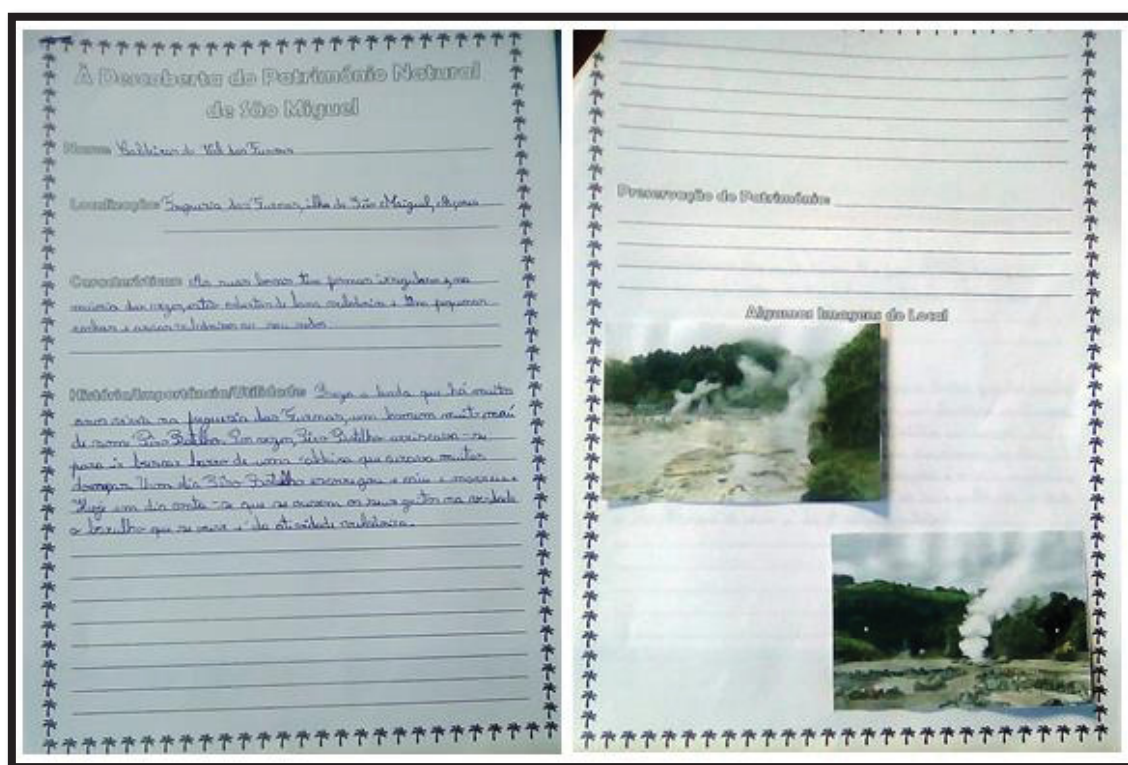 À Descoberta do Património Natural
de São Miguel
Nome: Caldeiras do Vale das Furnas
Localização: Freguesia das Furnas, ilha de São Maiguel, Açores
Características: As suas bocas têm formas irregulares e, na
maioria das vezes, estão cobertas de lama e têm pequenas
rochas e ao seu redor.
História/Importância/Utilidade: Reza a lenda que há muitos
anos vivia na freguesia das Furnas, um homem muito mau
de nome Pêro Botelho. Por vezes, Pêro Botelho arriscava-se
para ir buscar barro de uma caldeira que curava muitas
doenças. Um dia Pêro Botelho escorregou e caiu e morreu.
Hoje em dia conta-se que se ouvem os seus gritos na verdade
o barulho que se ouve é da atividade
Preservação do Património:
Algumas Imagens do Local